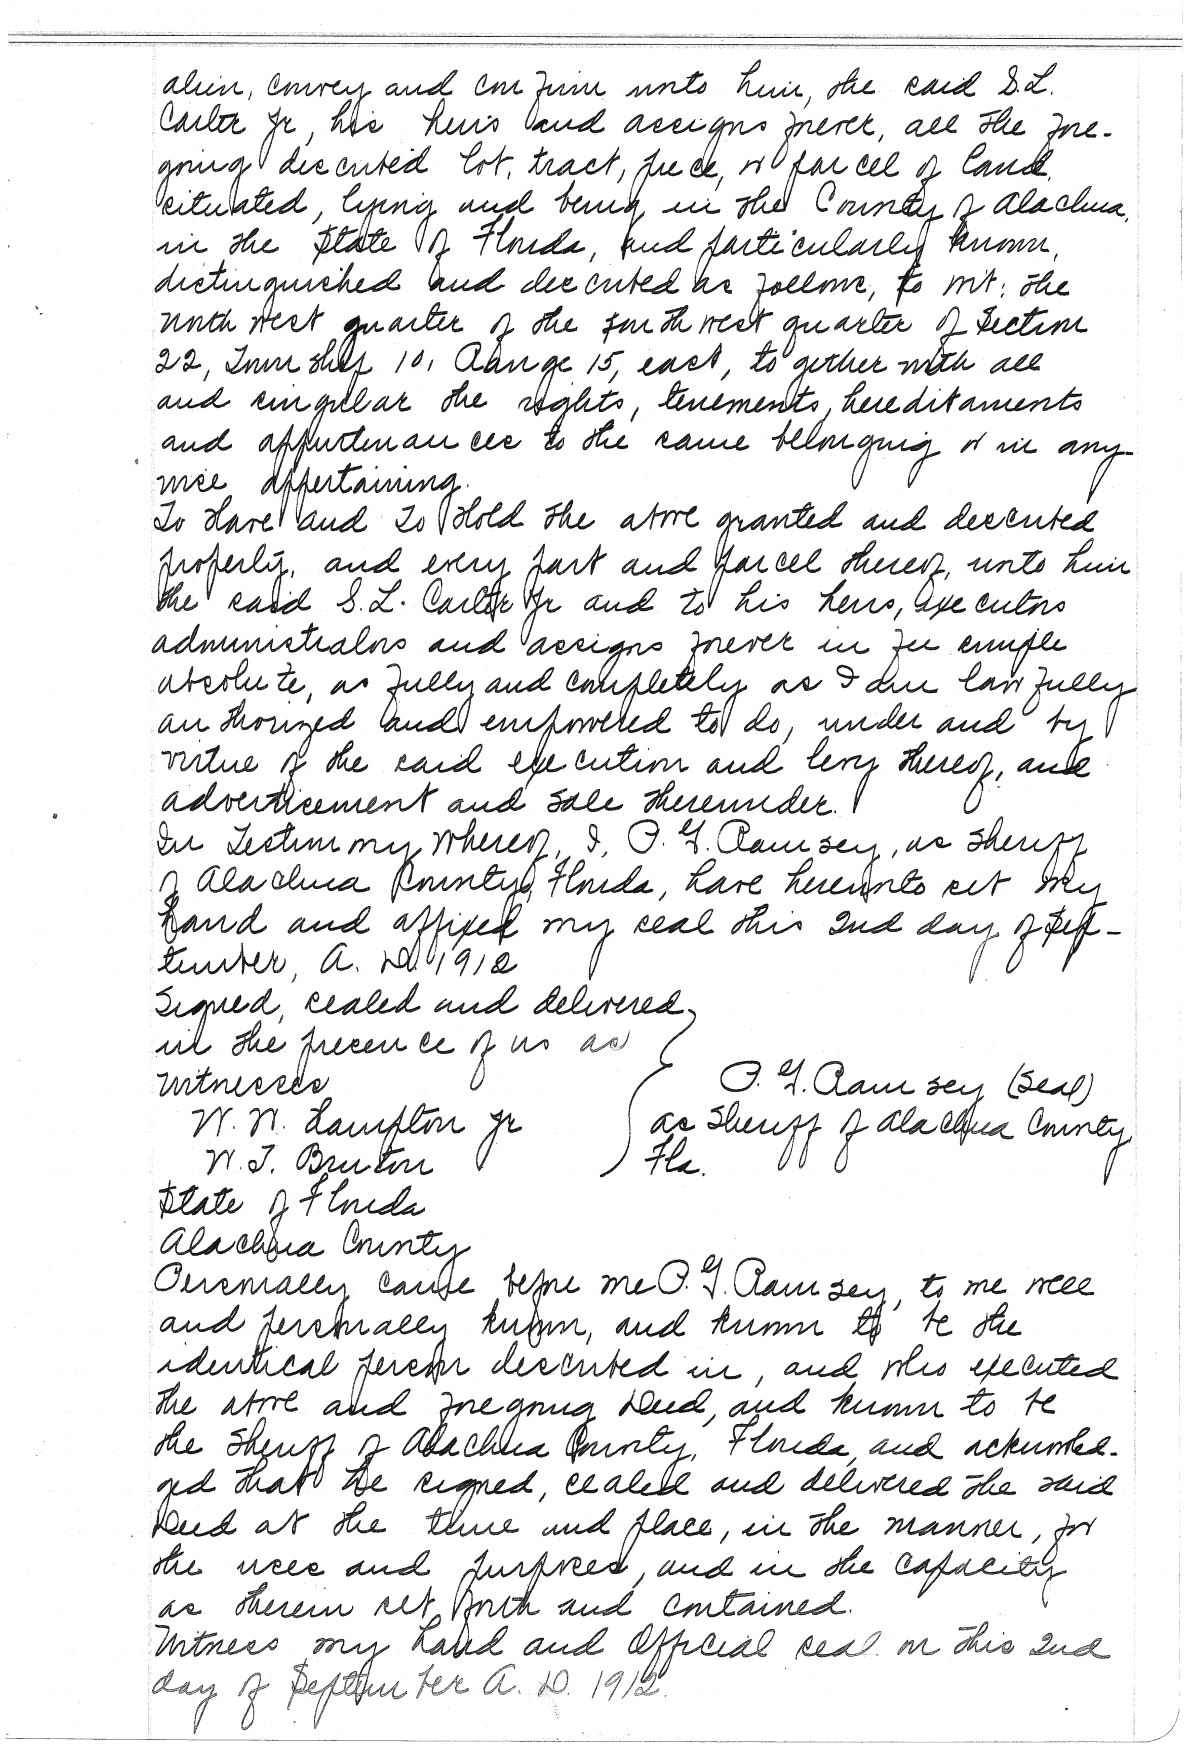 alien, convey and confirm unto him, the said S.L.
Carter Jr, his heirs and assigns forever, all the fore-
going described lot, tract, piece, or parcel of land,
situated, lying and being in the County of Alachua,
in the State of Florida, and particularly known,
distinguished and described as follows, to wit: the
North west quarter of the south west quarter of Section
22, Township 10, Range 15, east, to gether with all
and singular the rights, tenements, hereditaments
and appurtenances to the same belonging or in any-
wise appertaining.
To Have and To Hold the above granted and described
property, and every part and parcel thereof, unto him
the said S.L. Carter Jr and to his heirs, executors
administrators and assigns forever in fee simple
absolute, as fully and completely as I am lawfully
authorized and empowered to do, under and by
virtue of the said execution and levy thereof, and
advertisement and sale thereunder.
In Testimony Whereof, I, P. G. Ramsey, as Sheriff
of Alachua County, Florida, have hereunto set my
hand and affixed my seal this 2nd day of Sep-
tember, A. D. 1912
Signed, sealed and delivered
in the presence of us as
Witnesses
P. G. Ramsey (Seal)
W. W. Hampton Jr
as Sheriff of Alachua County
W. T. Bruton
Fla.
State of Florida
Alachua County
Personally came before me P. G. Ramsey, to me well
and personally known, and known to be the
identical person described in, and who executed
the above and foregoing Deed, and known to be
the Sheriff of Alachua County, Florida, and acknowled-
ged that he signed, sealed and delivered the said
Deed at the time and place, in the manner, for
the uses and purposes, and in the capacity
as therein set forth and contained.
Witness my hand and Official seal on this 2nd
day of September A. D. 1912.